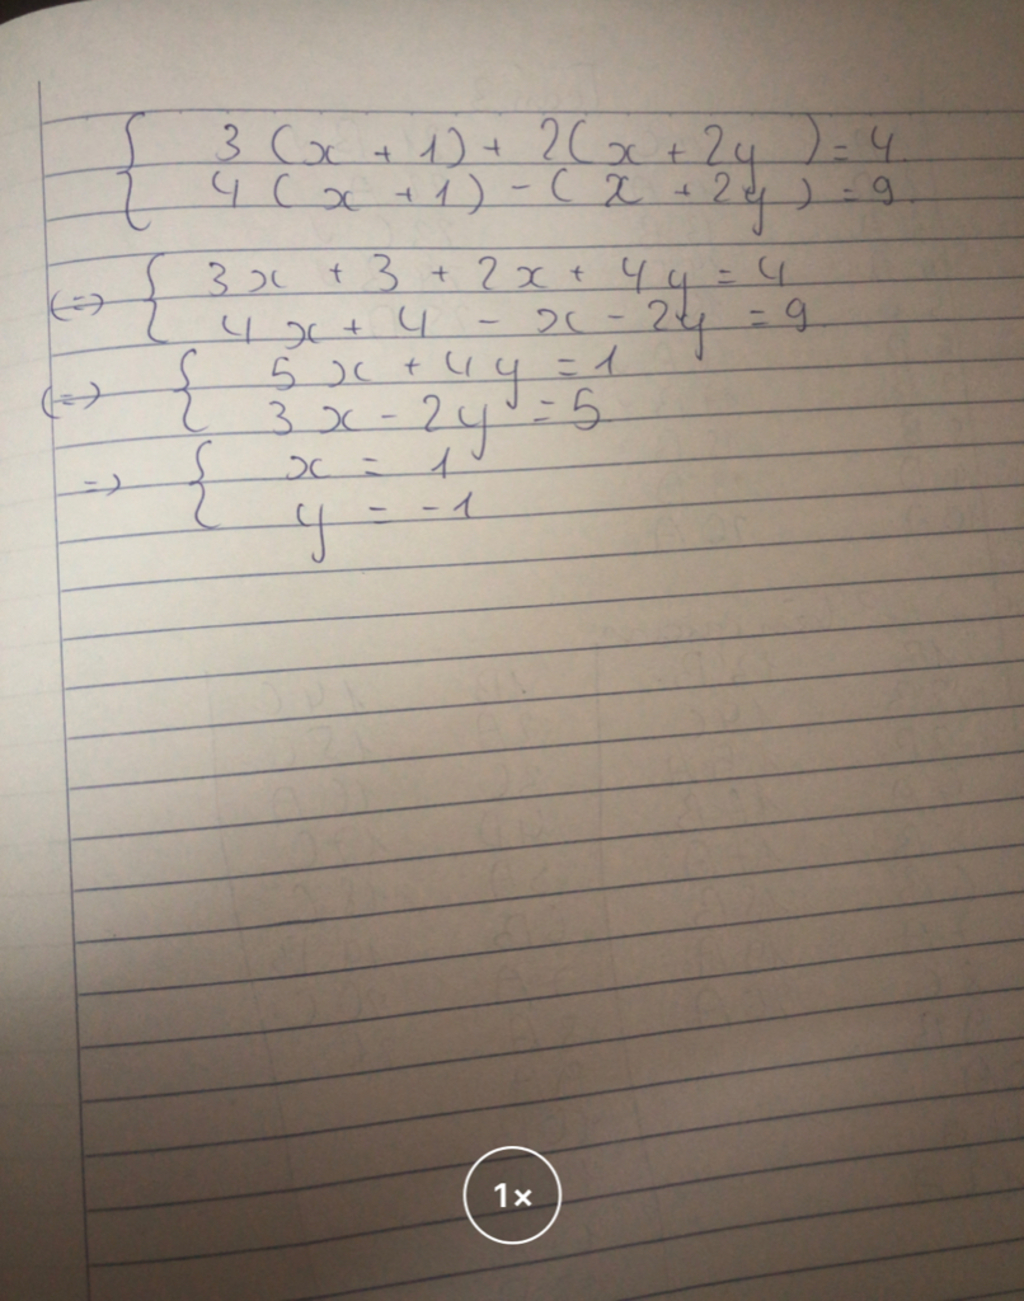 { 3 (x + 1) + 2(x + 2y ) = 4
4 ( x + 1) - ( x + 2y ) = 9
(=) { 3x + 3 + 2x + 4y = 4
4x + 4 - x - 2y = 9
(=) { 5x + 4y = 1
3x - 2y = 5
=) { x = 1
y = -1
1×